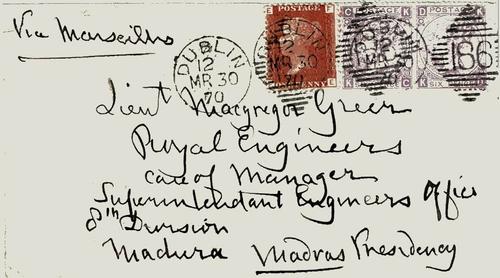 Via Marseilles
DUBLIN
12
MR 30
70
POSTAGE
PENNY
DUBLIN
12
MR 30
70
POSTAGE
SIX
186
Lieut Macgregor Greer
Royal Engineers
care of Manager
Superintendant Engineers Office
8th Division
Madura Madras Presidency